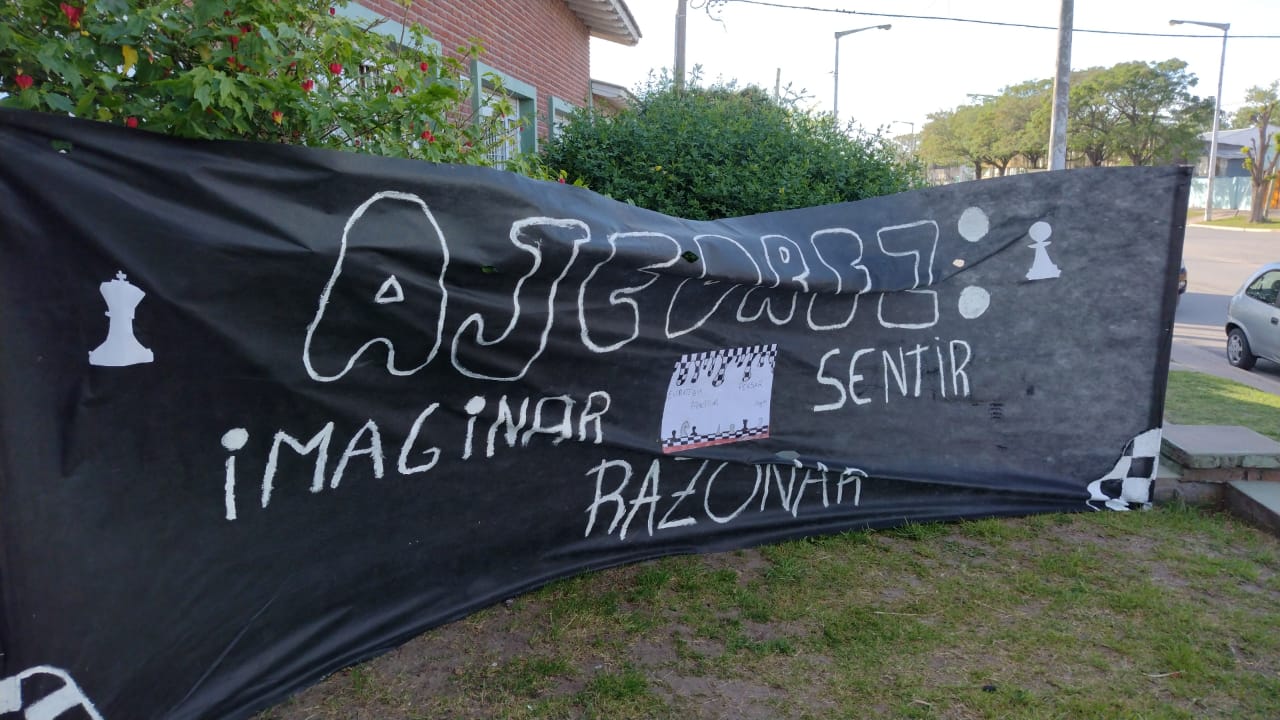 AJEDREZ:
IMAGINAR
SENTIR
RAZONAR
PENSAR